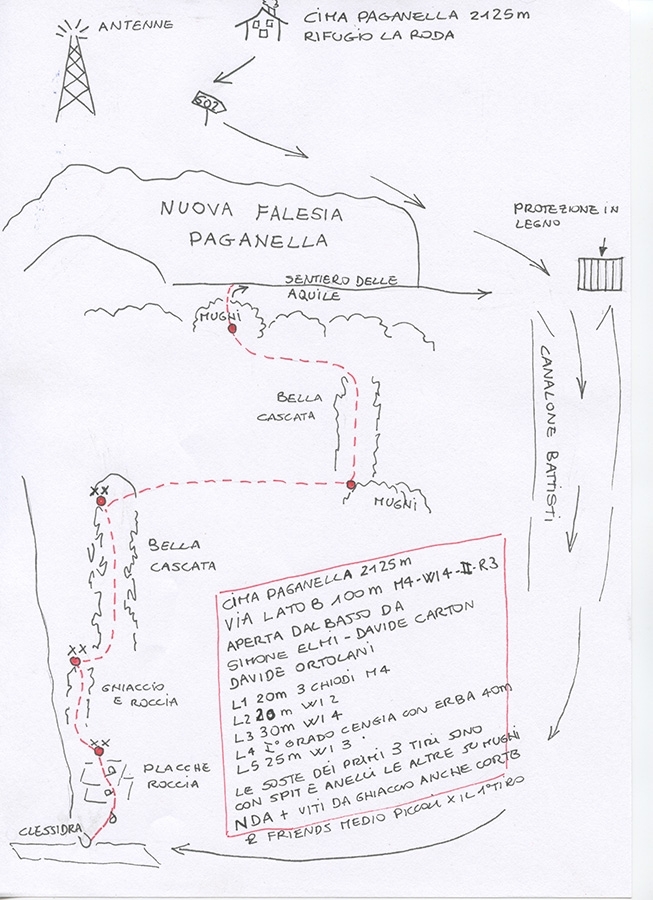 ANTENNE
CIMA PAGANELLA 2125m
RIFUGIO LA RODA
602
NUOVA FALESIA
PAGANELLA
PROTEZIONE IN
LEGNO
SENTIERO DELLE
AQUILE
MUGNI
BELLA
CASCATA
CANALONE BATTISTI
MUGNI
XX
BELLA
CASCATA
XX
GHIACCIO
E ROCCIA
XX
PLACCHE
ROCCIA
CLESSIDRA
CIMA PAGANELLA 2125m
VIA LATO B 100m M4-WI4-II-R3
APERTA DAL BASSO DA
SIMONE ELMI - DAVIDE CARTON
DAVIDE ORTOLANI
L1 20m 3 CHIODI M4
L2 20m WI 2
L3 30m WI 4
L4 I° GRADO CENGIA CON ERBA 40m
L5 25m WI 3.
LE SOSTE DEI PRIMI 3 TIRI SONO
CON SPIT E ANELLI LE ALTRE SU MUGNI
NDA + VITI DA GHIACCIO ANCHE CORTE
E FRIENDS MEDIO PICCOLI X IL 1° TIRO